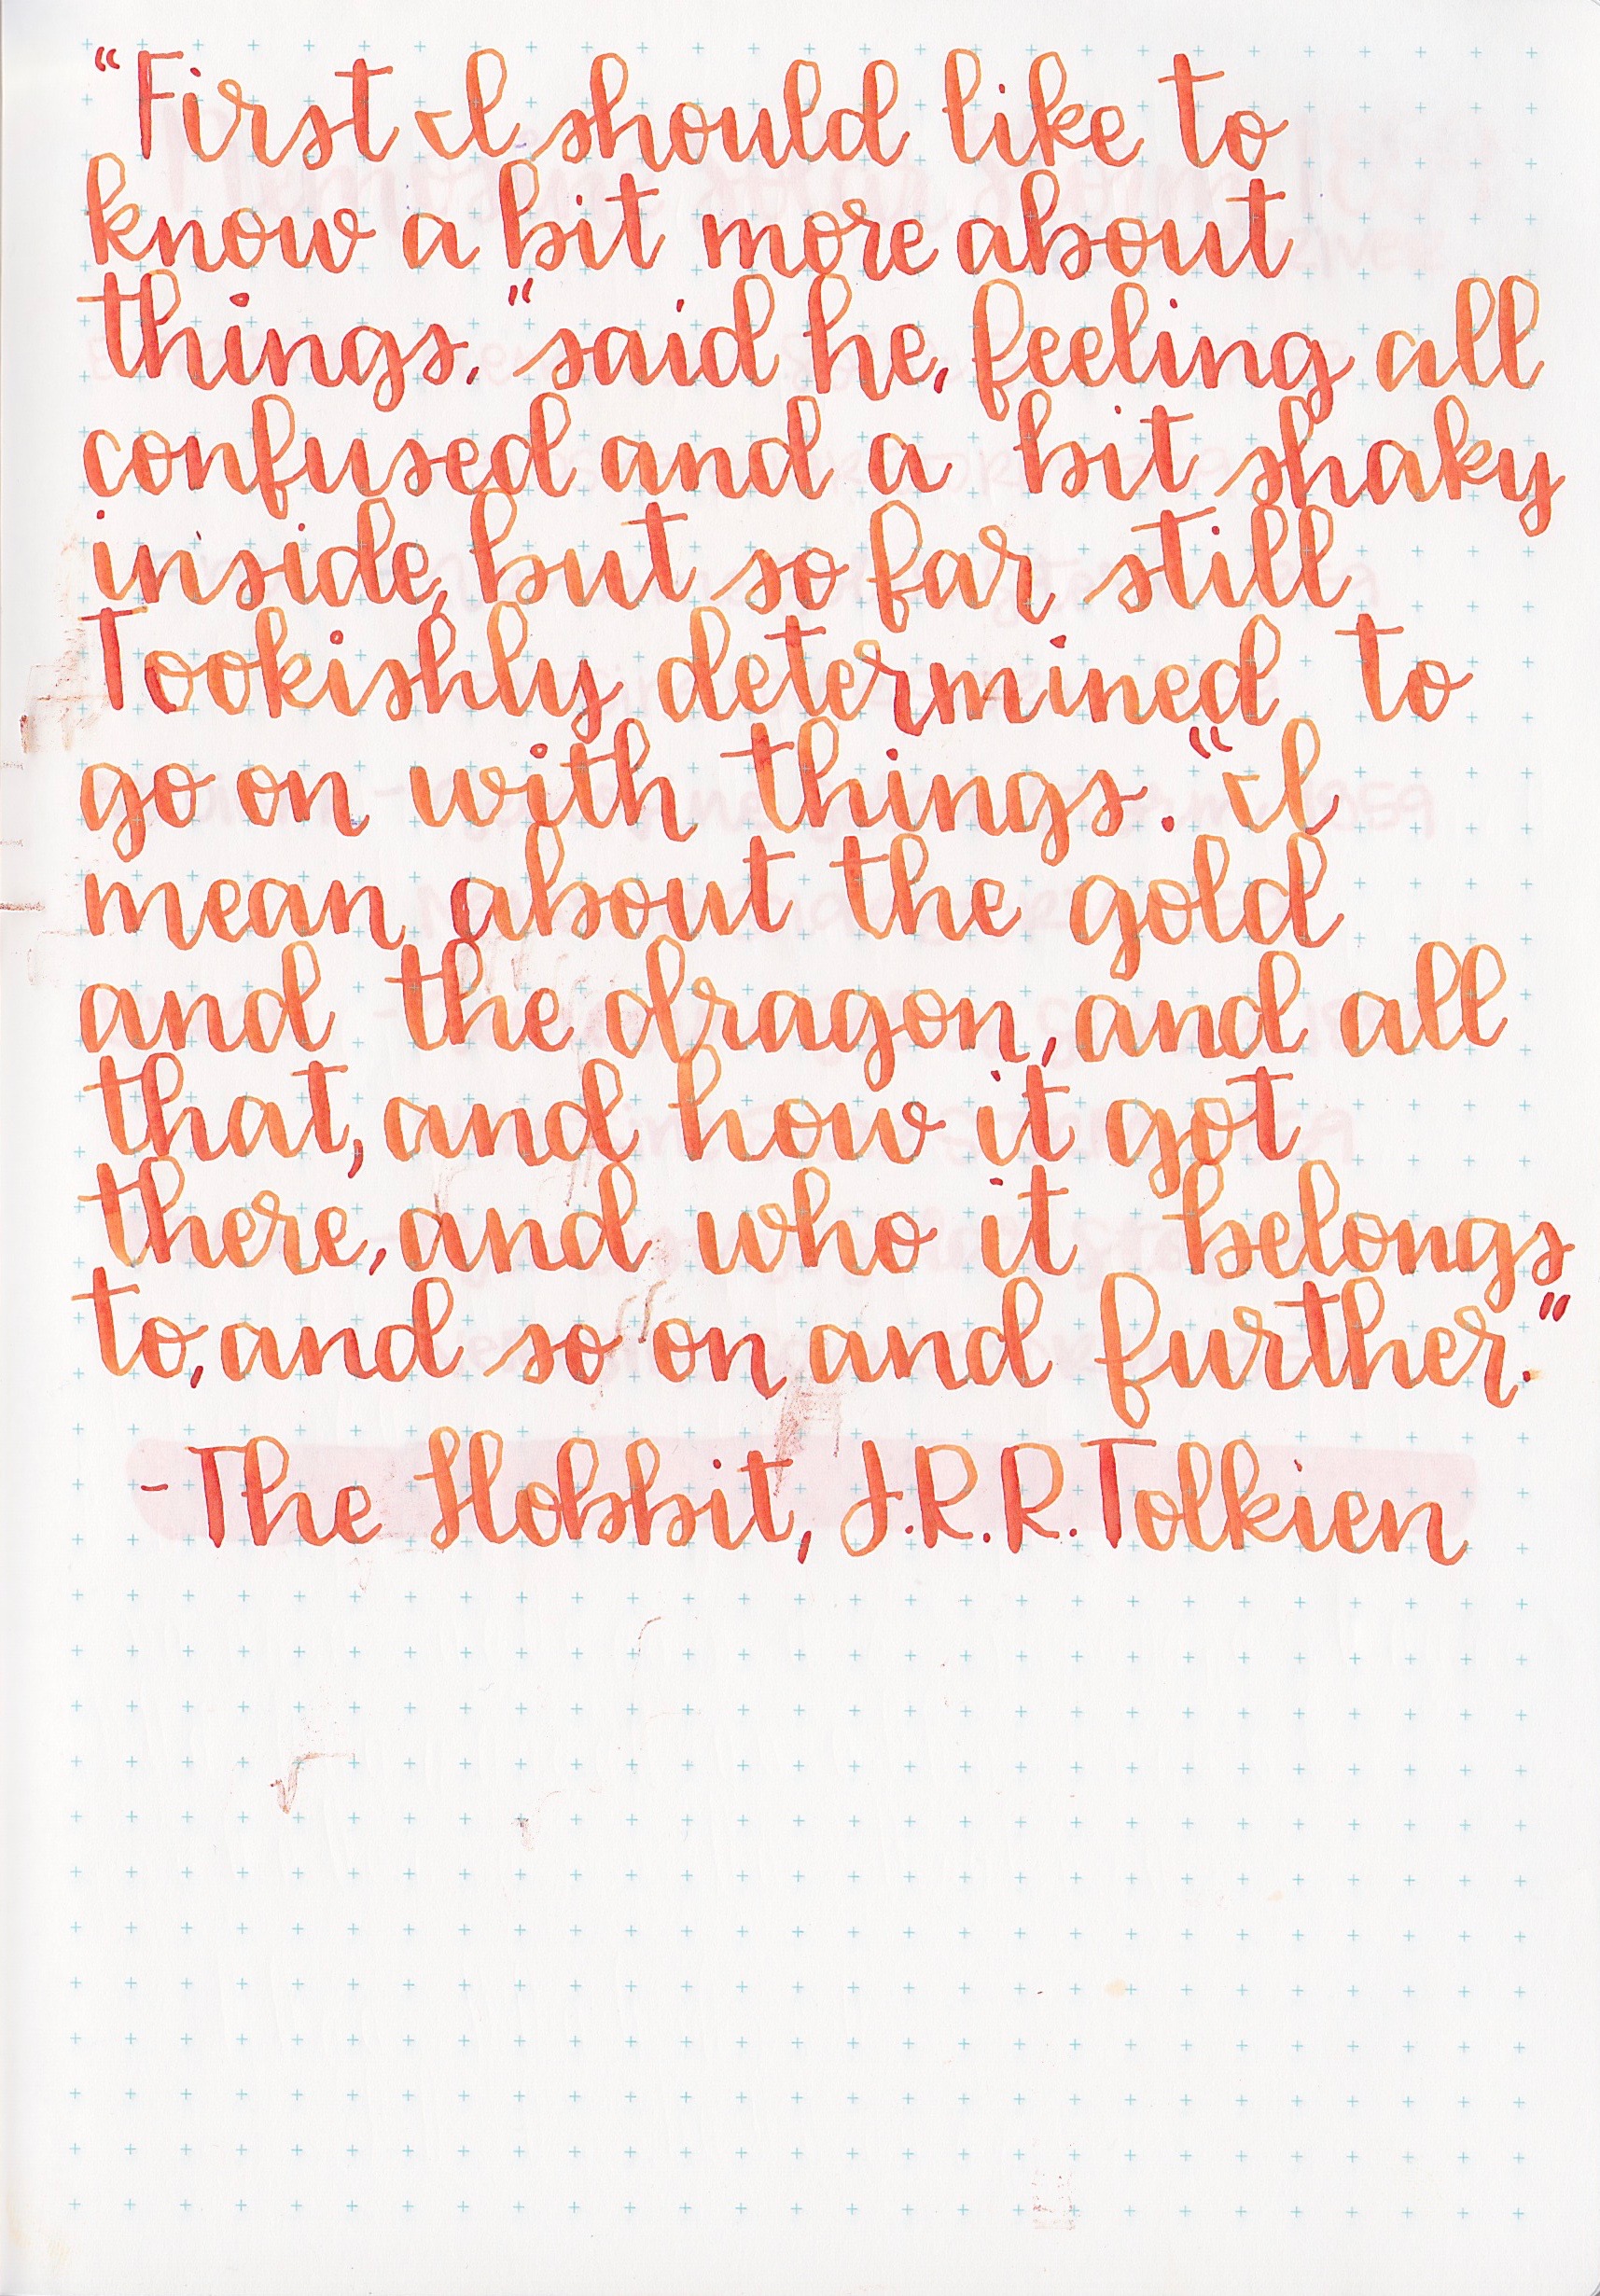 “First I should like to
know a bit more about
things,” said he, feeling all
confused and a bit shaky
inside, but so far still
Tookishly determined to
go on with things. “I
mean about the gold
and the dragon, and all
that, and how it got
there, and who it belongs
to, and so on and further.”
-The Hobbit, J.R.R. Tolkien